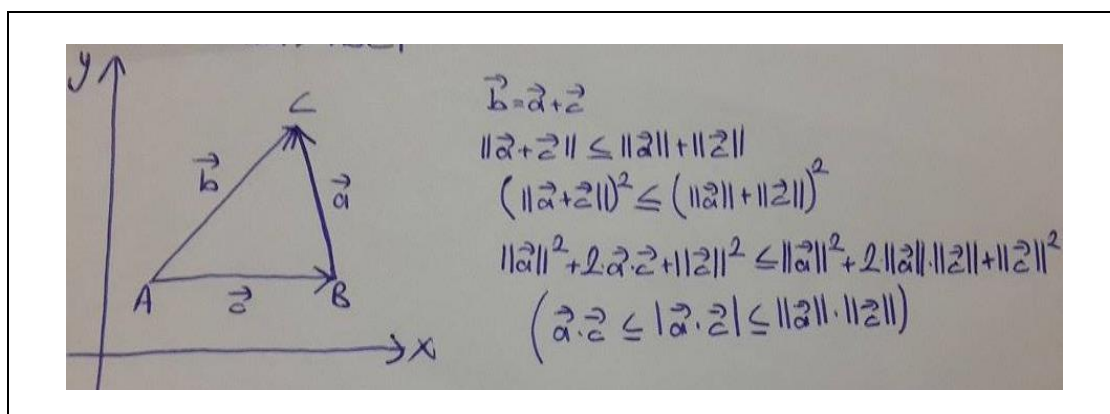 y
C
b⃗
a⃗
A
c⃗
B
x
b⃗=a⃗+c⃗
||a⃗+c⃗|| ≤ ||a⃗||+||c⃗||
(||a⃗+c⃗||)² ≤ (||a⃗||+||c⃗||)²
||a⃗||²+2·a⃗·c⃗+||c⃗||² ≤ ||a⃗||²+2·||a⃗||·||c⃗||+||c⃗||²
(a⃗·c⃗ ≤ |a⃗·c⃗| ≤ ||a⃗||·||c⃗||)